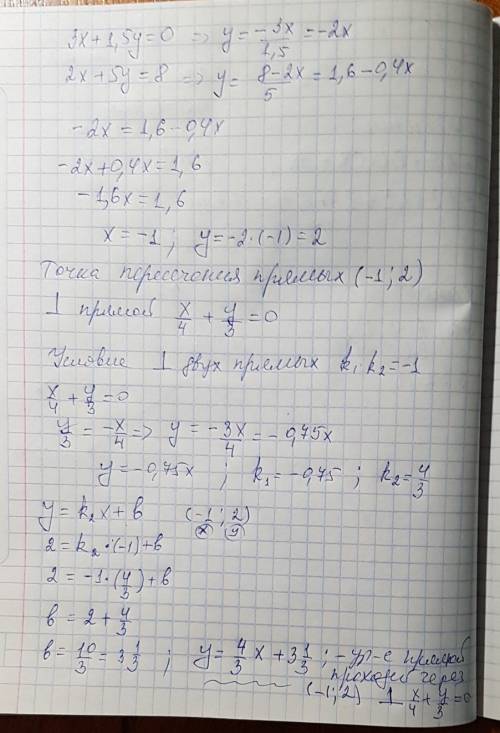 3x+1,5y=0 => y=-3x/1,5=-2x
2x+5y=8 => y=8-2x/5=1,6-0,4x
-2x=1,6-0,4x
-2x+0,4x=1,6
-1,6x=1,6
x=-1; y=-2·(-1)=2
Точка пересечения прямых (-1; 2)
⊥ прямой x/4+y/3=0
Условие ⊥ двух прямых k₁ k₂=-1
x/4+y/3=0
y/3=-x/4 => y=-3x/4=-0,75x
y=-0,75x ; k₁=-0,75 ; k₂=4/3
y=k₂x+b (-1; 2)
x y
2=k₂·(-1)+b
2=-1·(4/3)+b
b=2+4/3
b=10/3=3 1/3 ; y=4/3x+3 1/3; -ур-е прямой
проходящ через
(-1; 2) ⊥ x/4+y/3=0